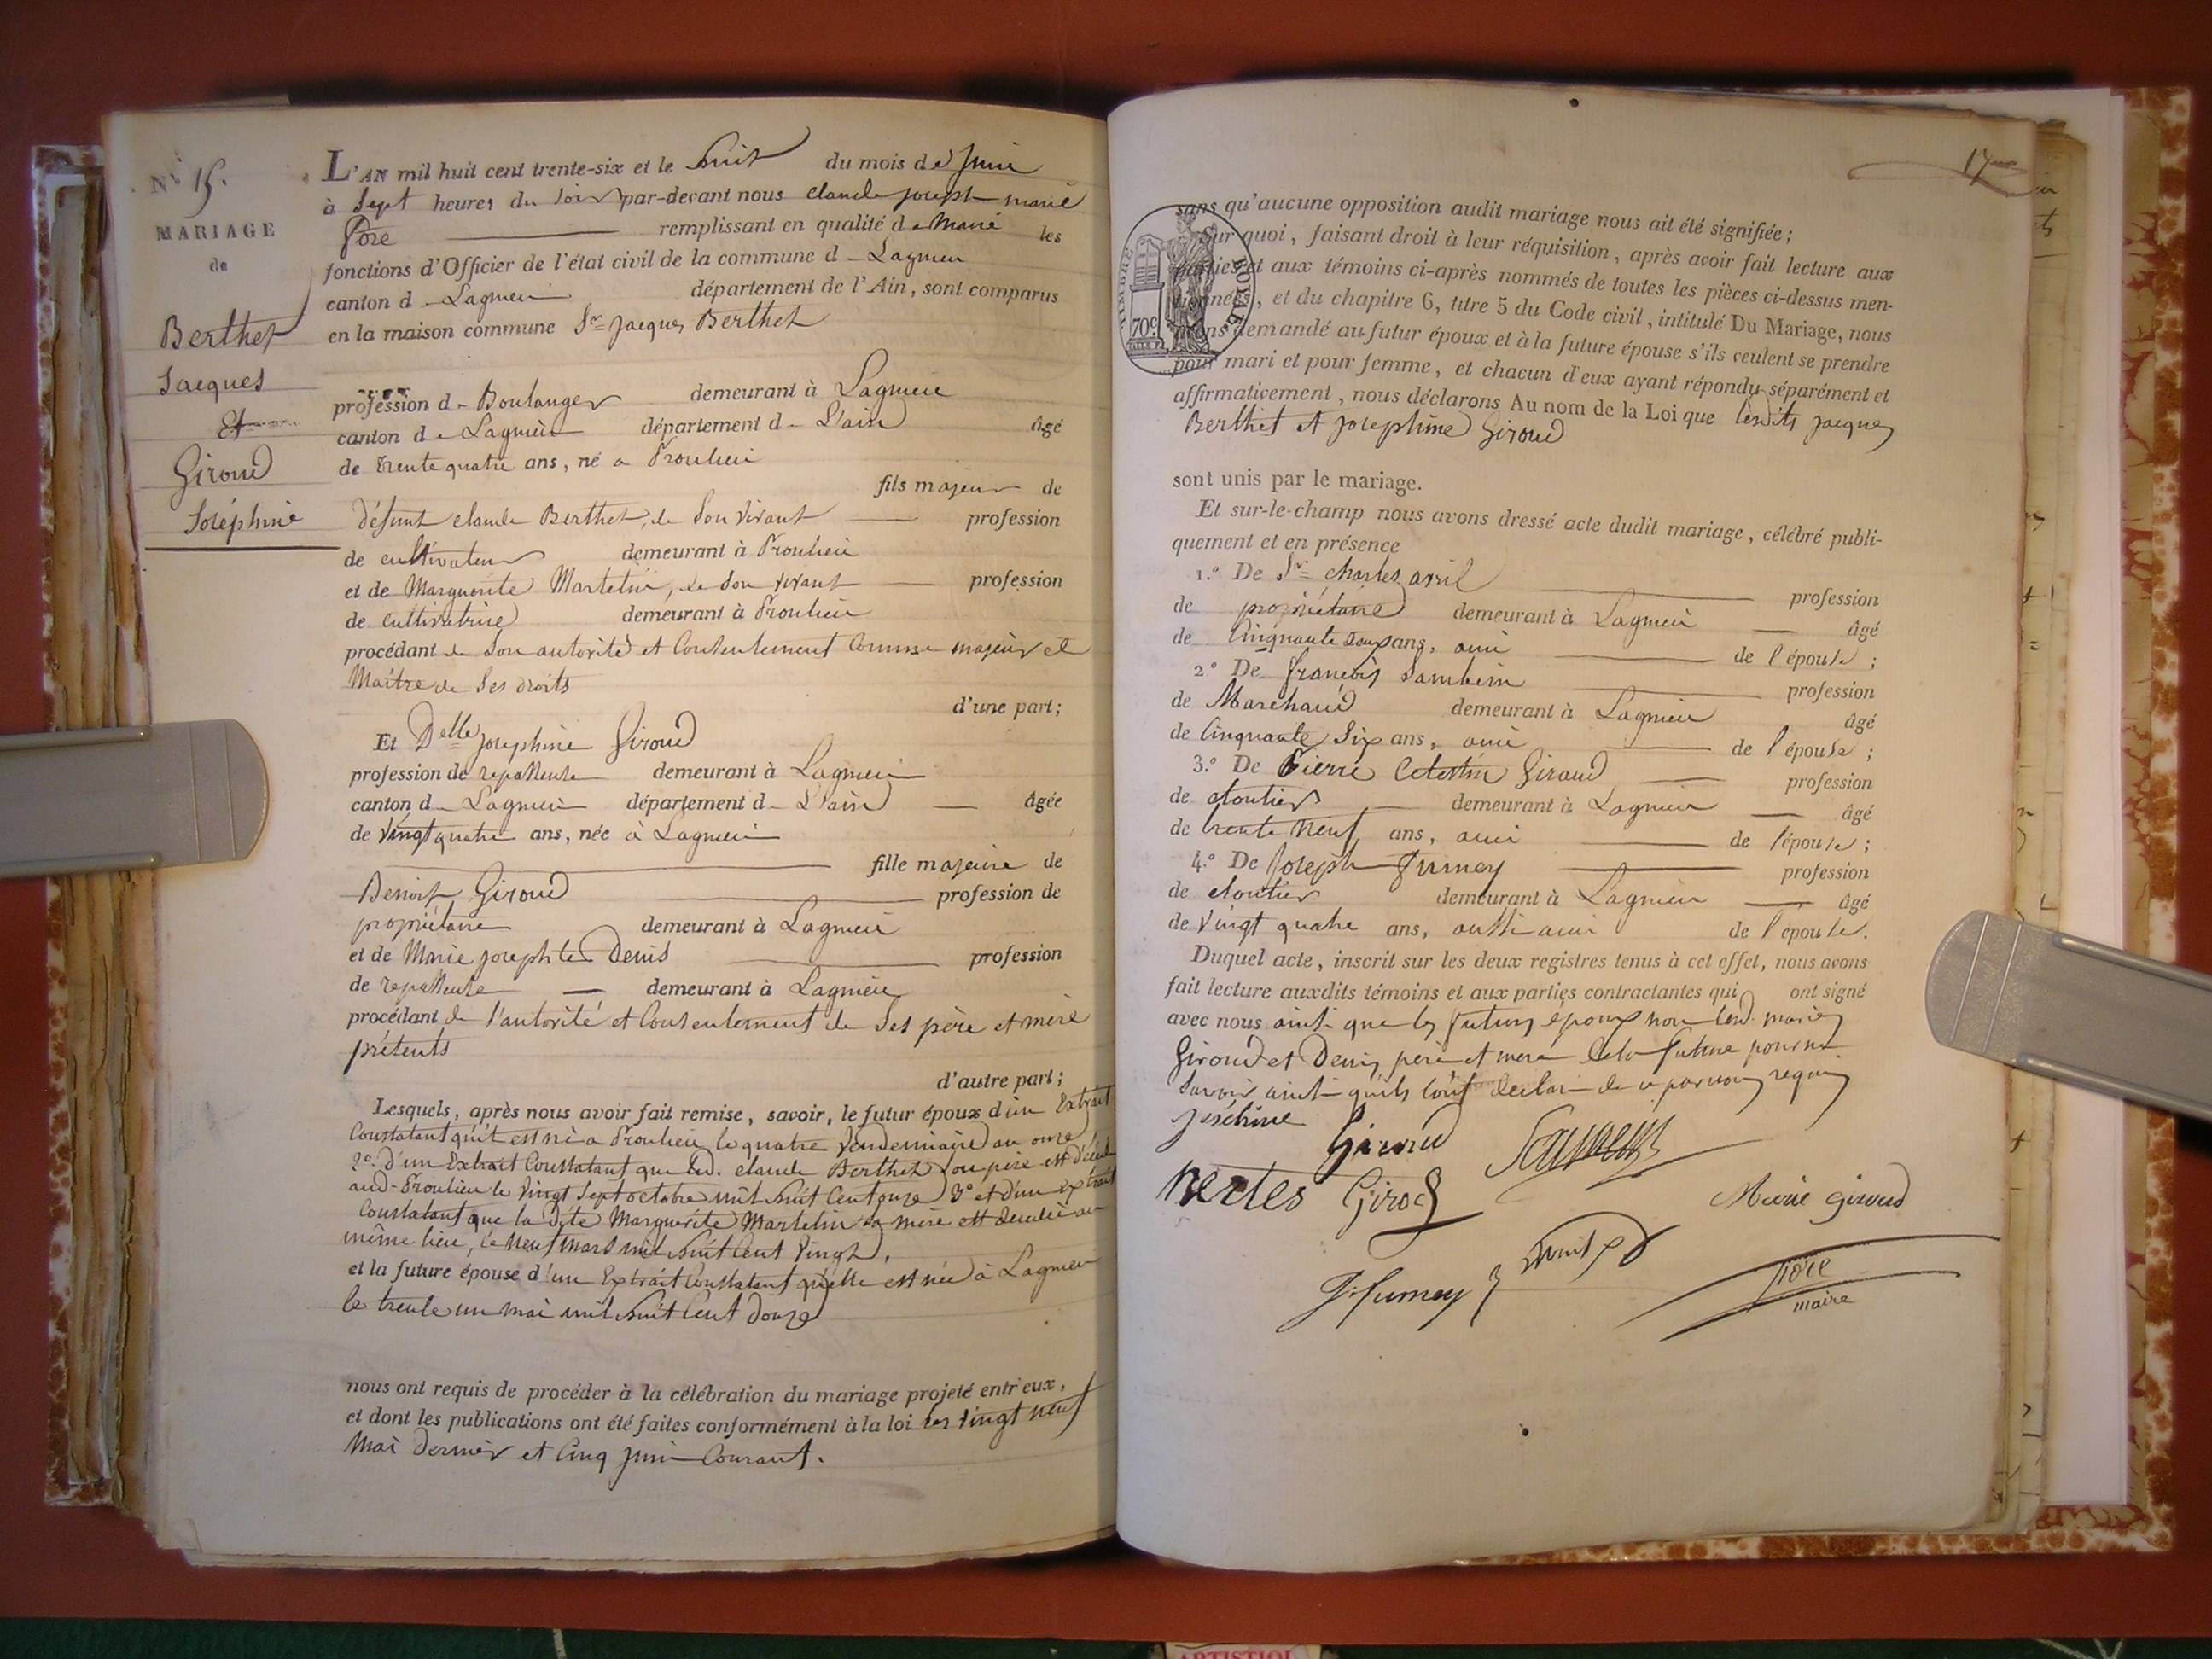 N.º 15.
MARIAGE
de
Berthet
Jacques
Et
Giroud
Joséphine
L'AN mil huit cent trente-six et le huit du mois de Juin
à Sept heures du Soir par-devant nous Claude joseph marie
remplissant en qualité de Maire les
fonctions d'Officier de l'état civil de la commune d - Lagnieu
canton d - Lagnieu département de l'Ain, sont comparus
en la maison commune Sr. Jacques Berthet
profession d - Boulanger demeurant à Lagnieu
canton de Lagnieu département d - L'ain âgé
de trente quatre ans, né a Proulieu
fils majeur de
défunt claude Berthet, de Son vivant profession
de cultivateur demeurant à Proulieu
et de Marguerite Martelin, de Son vivant profession
de cultivatrice demeurant à Proulieu
procédant de Son autorité et Consentement Comme majeur et
Maître de Ses droits
d'une part;
Et Delle Josephine Giroud
profession de repasseuse demeurant à Lagnieu
canton d - Lagnieu département d - L'ain âgée
de vingt quatre ans, née à Lagnieu
fille majeure de
Benoit Giroud profession de
propriétaire demeurant à Lagnieu
et de Marie Josephte Denis profession
de repasseuse demeurant à Lagnieu
procédant de l'autorité et Consentement de Ses père et mère
présents
d'autre part;
Lesquels, après nous avoir fait remise, savoir, le futur époux d'un Extrait
Constatant qu'il est né a Proulieu le quatre Vendemiaire an onze,
2º. d'un Extrait Constatant que led. claude Berthet Son père est décédé
aud. Proulieu le vingt Sept octobre mil huit Cent onze 3º et d'un extrait
Constatant que la dite Marguerite Martelin sa mère est décédée au
même lieu, le neuf mars mil huit Cent vingt,
et la future épouse d'un Extrait Constatant qu'elle est née à Lagnieu
le trente un mai mil huit Cent douze
nous ont requis de procéder à la célébration du mariage projeté entr'eux,
et dont les publications ont été faites conformément à la loi les vingt neuf
Mai dernier et Cinq juin Courant.
17
TIMBRE ROYAL
70c
sans qu'aucune opposition audit mariage nous ait été signifiée;
Sur quoi, faisant droit à leur réquisition, après avoir fait lecture aux
parties et aux témoins ci-après nommés de toutes les pièces ci-dessus men-
tionnées, et du chapitre 6, titre 5 du Code civil, intitulé Du Mariage, nous
avons demandé au futur époux et à la future épouse s'ils veulent se prendre
pour mari et pour femme, et chacun d'eux ayant répondu séparément et
affirmativement, nous déclarons Au nom de la Loi que lesdits Jacques
Berthet et Josephine Giroud
sont unis par le mariage.
Et sur-le-champ nous avons dressé acte dudit mariage, célébré publi-
quement et en présence
1.º De Sr. charles avril profession
de propriétaire demeurant à Lagnieu âgé
de Cinquante ans, ami de l'épouse;
2º De François profession
de Marchand demeurant à Lagnieu âgé
de Cinquante Six ans, ami de l'épouse;
3.º De Pierre Celestin Giraud profession
de cloutier demeurant à Lagnieu âgé
de trente neuf ans, ami de l'épouse;
4.º De Joseph profession
de cloutier demeurant à Lagnieu âgé
de vingt quatre ans, aussi ami de l'épouse.
Duquel acte, inscrit sur les deux registres tenus à cet effet, nous avons
fait lecture auxdits témoins et aux parties contractantes qui ont signé
avec nous ainsi que les futurs époux non lesd. mariés
Giroud et Denis, père et mere de la future pour ne
Savoir ainsi qu'ils l'ont déclaré de ce par nous requis
Giroud
Marie Giroud
maire